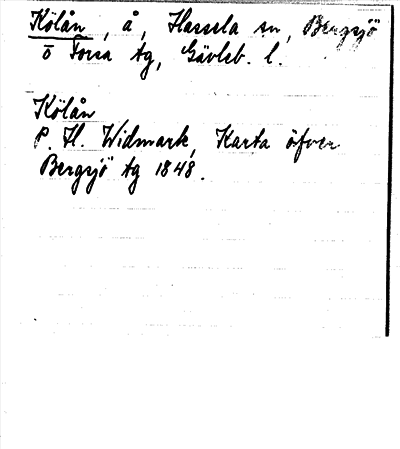 Kölån, å, Hassela sn, Bergsjö
o Forsa tg, Gävleb. l.
Kölån
P. H. Widmark, Karta öfver
Bergsjö tg 1848.